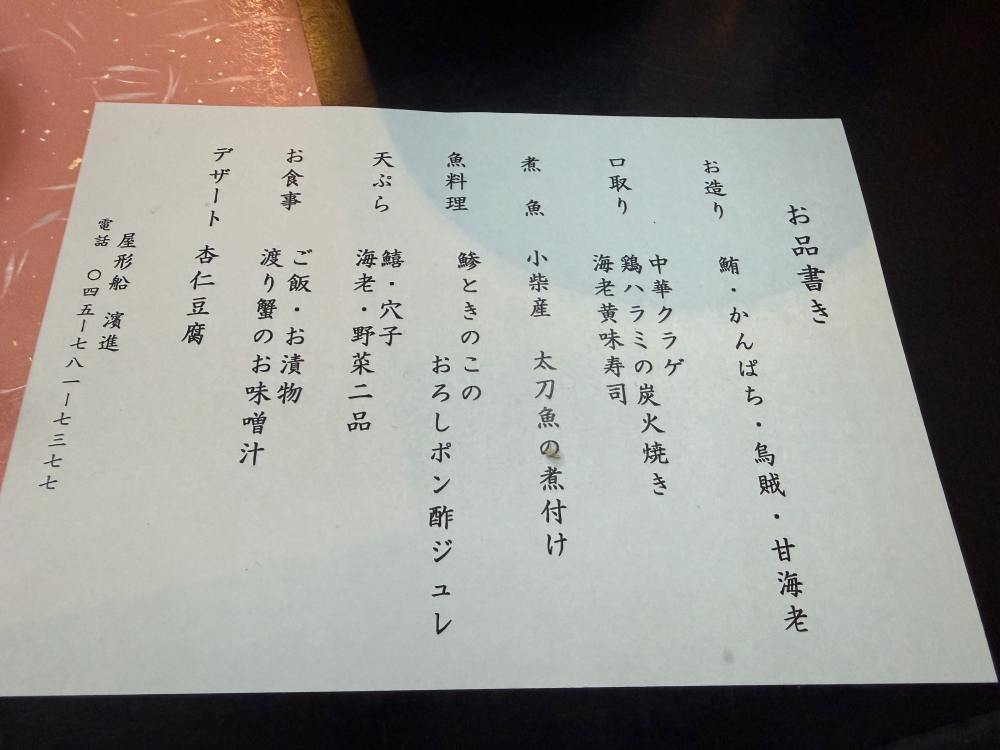 お品書き
お造り　鮪・かんぱち・烏賊・甘海老
口取り　中華クラゲ
鶏ハラミの炭火焼き
海老黄味寿司
煮魚　小柴産　太刀魚の煮付け
魚料理　鯵ときのこの
おろしポン酢ジュレ
天ぷら　鱚・穴子
海老・野菜二品
お食事　ご飯・お漬物
渡り蟹のお味噌汁
デザート　杏仁豆腐
屋形船　濱進
電話　〇四五ー七八一ー七三七七